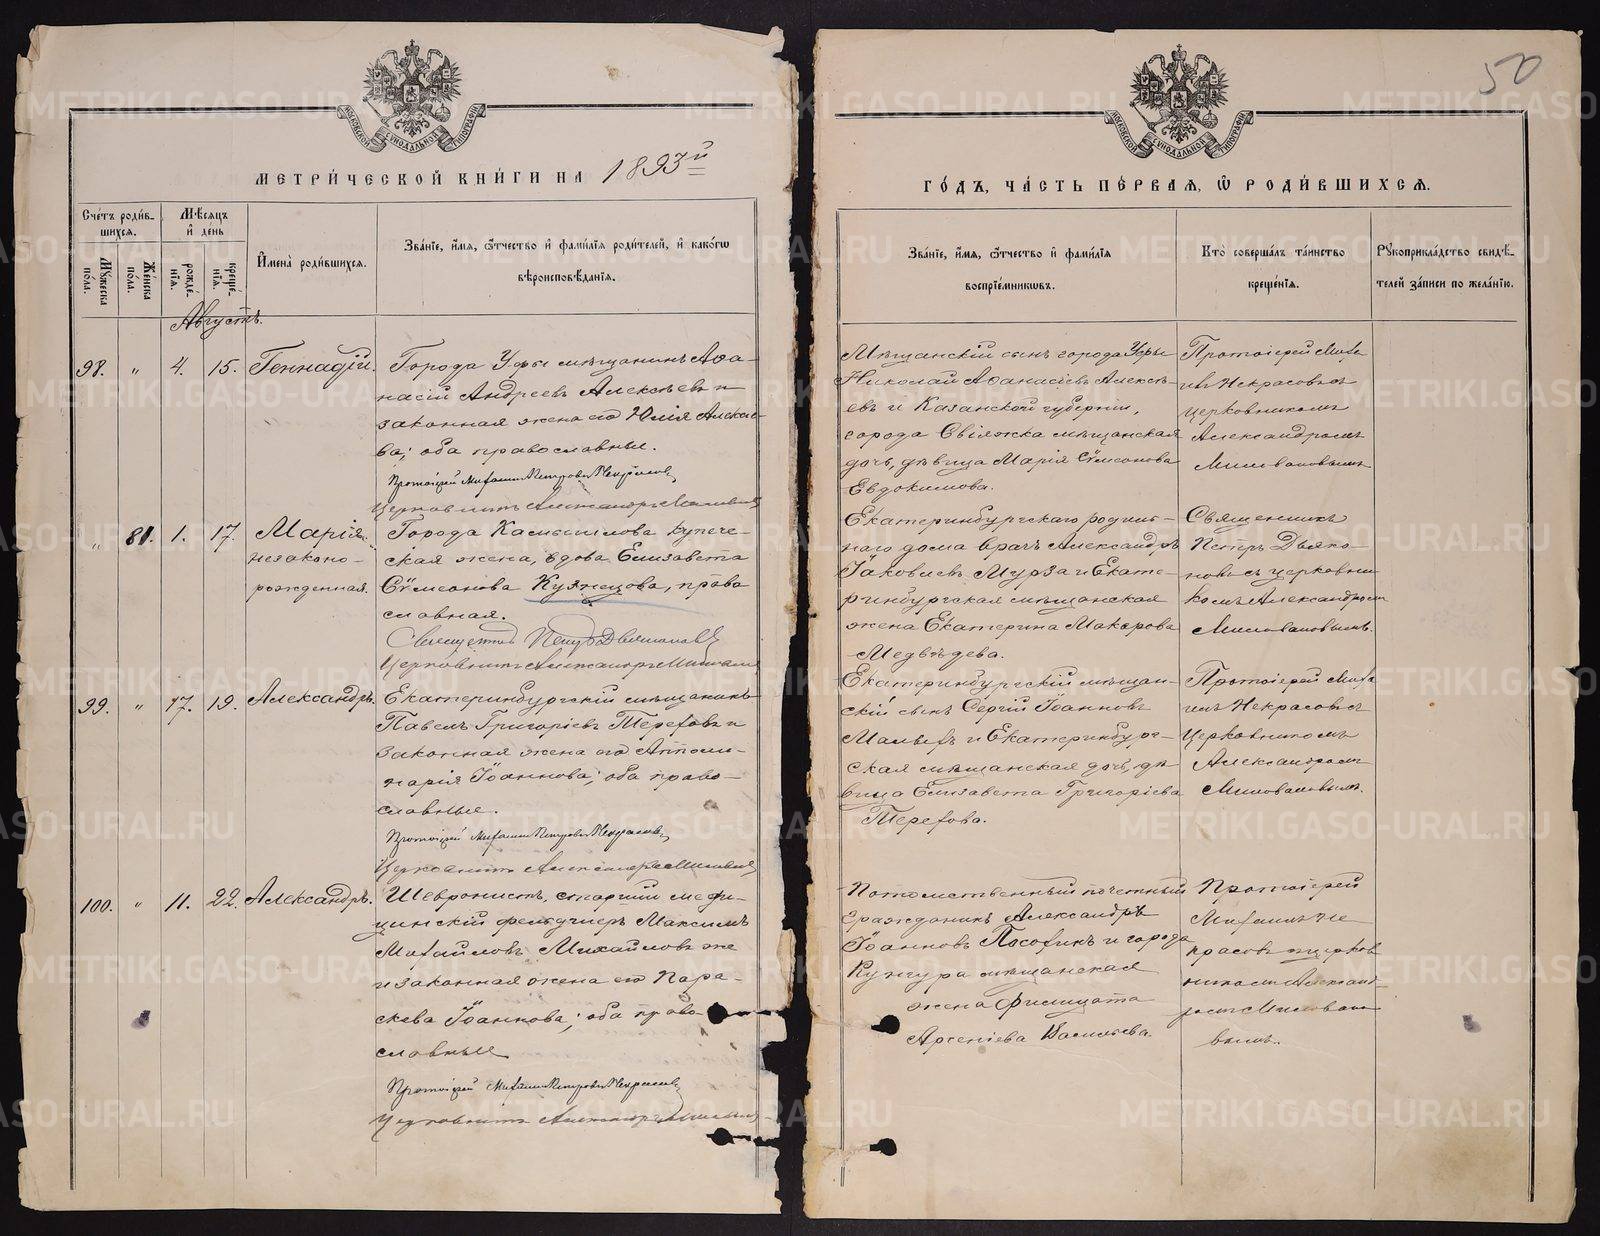 МОСКОВСКОЙ СѴНОДАЛЬНОЙ ТИПОГРАФІИ
МЕТРИ́ЧЕСКОЙ КНИ́ГИ НА 1893й
Сче́тъ роди́в-
шихся.
Мѣ́сяцъ
и҆ де́нь
Мꙋ́жеска
по́ла.
Же́нска
по́ла.
рожде́-
нїя.
креще́-
нїя.
И҆мена̀ роди́вшихся.
Зва́нїе, и҆́мя, ѻ҆́тчество и҆ фами́лїя роди́телей, и҆ како́гѡ
вѣроисповѣ́данїя.
Августъ.
98. " 4. 15. Геннадій.
Города Уфы мѣщанинъ Аѳа-
насій Андреевъ Алексѣевъ и
законная жена его Юлія Алексѣе-
ва; оба православные.
Протоіерей Михаилъ Петровъ Некрасовъ
Церковникъ Александръ Миловановъ
" 81. 1. 17. Марія
незаконо-
рожденная.
Города Камышлова купече-
ская жена, вдова Елизавета
Сѵмеонова Кузнецова, право
славная.
Священникъ Петръ Дьяконовъ
Церковникъ Александръ Миловановъ
99. " 17. 19. Александръ.
Екатеринбургскій мѣщанинъ
Павелъ Григоріевъ Тереховъ и
законная жена его Аполли-
нарія Іоаннова; оба право-
славные.
Протоіерей Михаилъ Петровъ Некрасовъ
Церковникъ Александръ Миловановъ
100. " 11. 22. Александръ.
Шевронистъ, старшій меди-
цинскій фельдшеръ Максимъ
Михайловъ Михайловъ же
и законная жена его Пара-
скева Іоаннова; оба право
славные
Протоіерей Михаилъ Петровъ Некрасовъ
Церковникъ Александръ Миловановъ
50
МОСКОВСКОЙ СѴНОДАЛЬНОЙ ТИПОГРАФІИ
ГО́ДЪ, ЧА́СТЬ ПЕ́РВАЯ, Ѡ҆ РОДИ́ВШИХСЯ.
Зва́нїе, и҆́мя, ѻ҆́тчество и҆ фами́лїя
воспрїе́мникѡвъ.
Кто̀ соверша́лъ та́инство
креще́нїя.
Рꙋкоприкла́дство свидѣ́-
телей за́писи по жела́нїю.
Мѣщанскій сынъ города Уфы
Николай Аѳанасіевъ Алексѣ-
евъ и Казанской губерніи,
города Свіяжска мѣщанская
дочь, дѣвица Марія Сѵмеонова
Евдокимова.
Протоіерей Миха-
илъ Некрасовъ съ
церковникомъ
Александромъ
Миловановымъ
Екатеринбургскаго родиль-
наго дома врачъ Александръ
Іаковлевъ Мурза и Екате-
ринбургская мѣщанская
жена Екатерина Макарова
Медвѣдева.
Священникъ
Петръ Дьяко-
новъ съ церковни
комъ Александромъ
Миловановымъ.
Екатеринбургскій мѣщан-
скій сынъ Сергій Іоанновъ
Малыхъ и Екатеринбург-
ская мѣщанская дочь, дѣ-
вица Елизавета Григоріева
Терехова.
Протоіерей Миха
илъ Некрасовъ съ
Церковникомъ
Александромъ
Миловановымъ.
Потомственный почетный
гражданинъ Александръ
Іоанновъ Посохинъ и города
Кунгура мѣщанская
жена Филицата
Арсеніева Васильева.
Протоіерей
Михаилъ Не
красовъ съ церков
никомъ Александ-
ромъ Миловано
вымъ.
METRIKI.GASO-URAL.RU